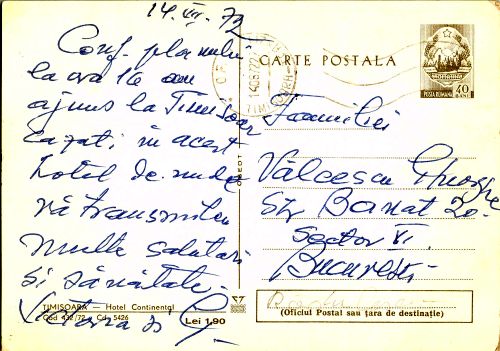 14.VII.72
Conf. planului
la ora 16 am
ajuns la Timisoara
Cazați în acest
hotel de unde
vă transmitem
multe salutări
și sănătate
Victoria și
TIMIȘOARA — Hotel Continental
Cod 432/72 Cd. 5426
Lei 1,90
CARTE POSTALA
POSTA ROMANA
40
BANI
Familiei
Vâlcescu Gheorghe
Str Banat 20
Sector VI
București
Radu
(Oficiul Postal sau țara de destinație)